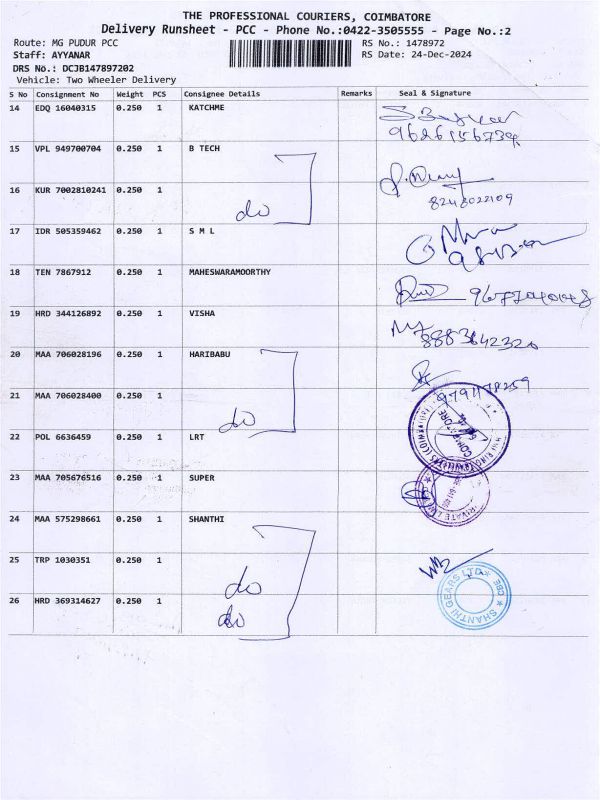 THE PROFESSIONAL COURIERS, COIMBATORE
Delivery Runsheet - PCC - Phone No.:0422-3505555 - Page No.:2
Route: MG PUDUR PCC RS No.: 1478972
Staff: AYYANAR RS Date: 24-Dec-2024
DRS No.: DCJB147897202
Vehicle: Two Wheeler Delivery
S No Consignment No Weight PCS Consignee Details Remarks Seal & Signature
14 EDQ 16040315 0.250 1 KATCHME
15 VPL 949700704 0.250 1 B TECH
16 KUR 7002810241 0.250 1
do
8248022109
17 IDR 505359462 0.250 1 S M L
18 TEN 7867912 0.250 1 MAHESWARAMOORTHY
19 HRD 344126892 0.250 1 VISHA
8883642320
20 MAA 706028196 0.250 1 HARIBABU
21 MAA 706028400 0.250 1
do
22 POL 6636459 0.250 1 LRT
23 MAA 705676516 0.250 1 SUPER
24 MAA 575298661 0.250 1 SHANTHI
25 TRP 1030351 0.250 1
do
26 HRD 369314627 0.250 1
do
SHANTHI GEARS LTD. CBE